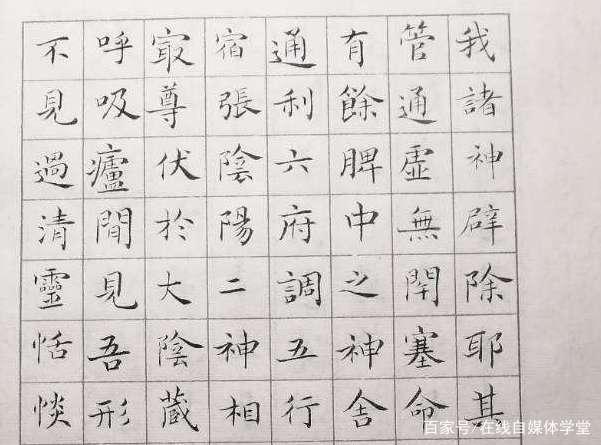 我諸神辟除耶其
管通虛無閇塞命
有餘脾中之神舍
通利六府調五行
宿張陰陽二神相
㝡尊伏於大陰藏
呼吸閒見吾形
不見過清靈恬惔
百家号/在线自媒体学堂